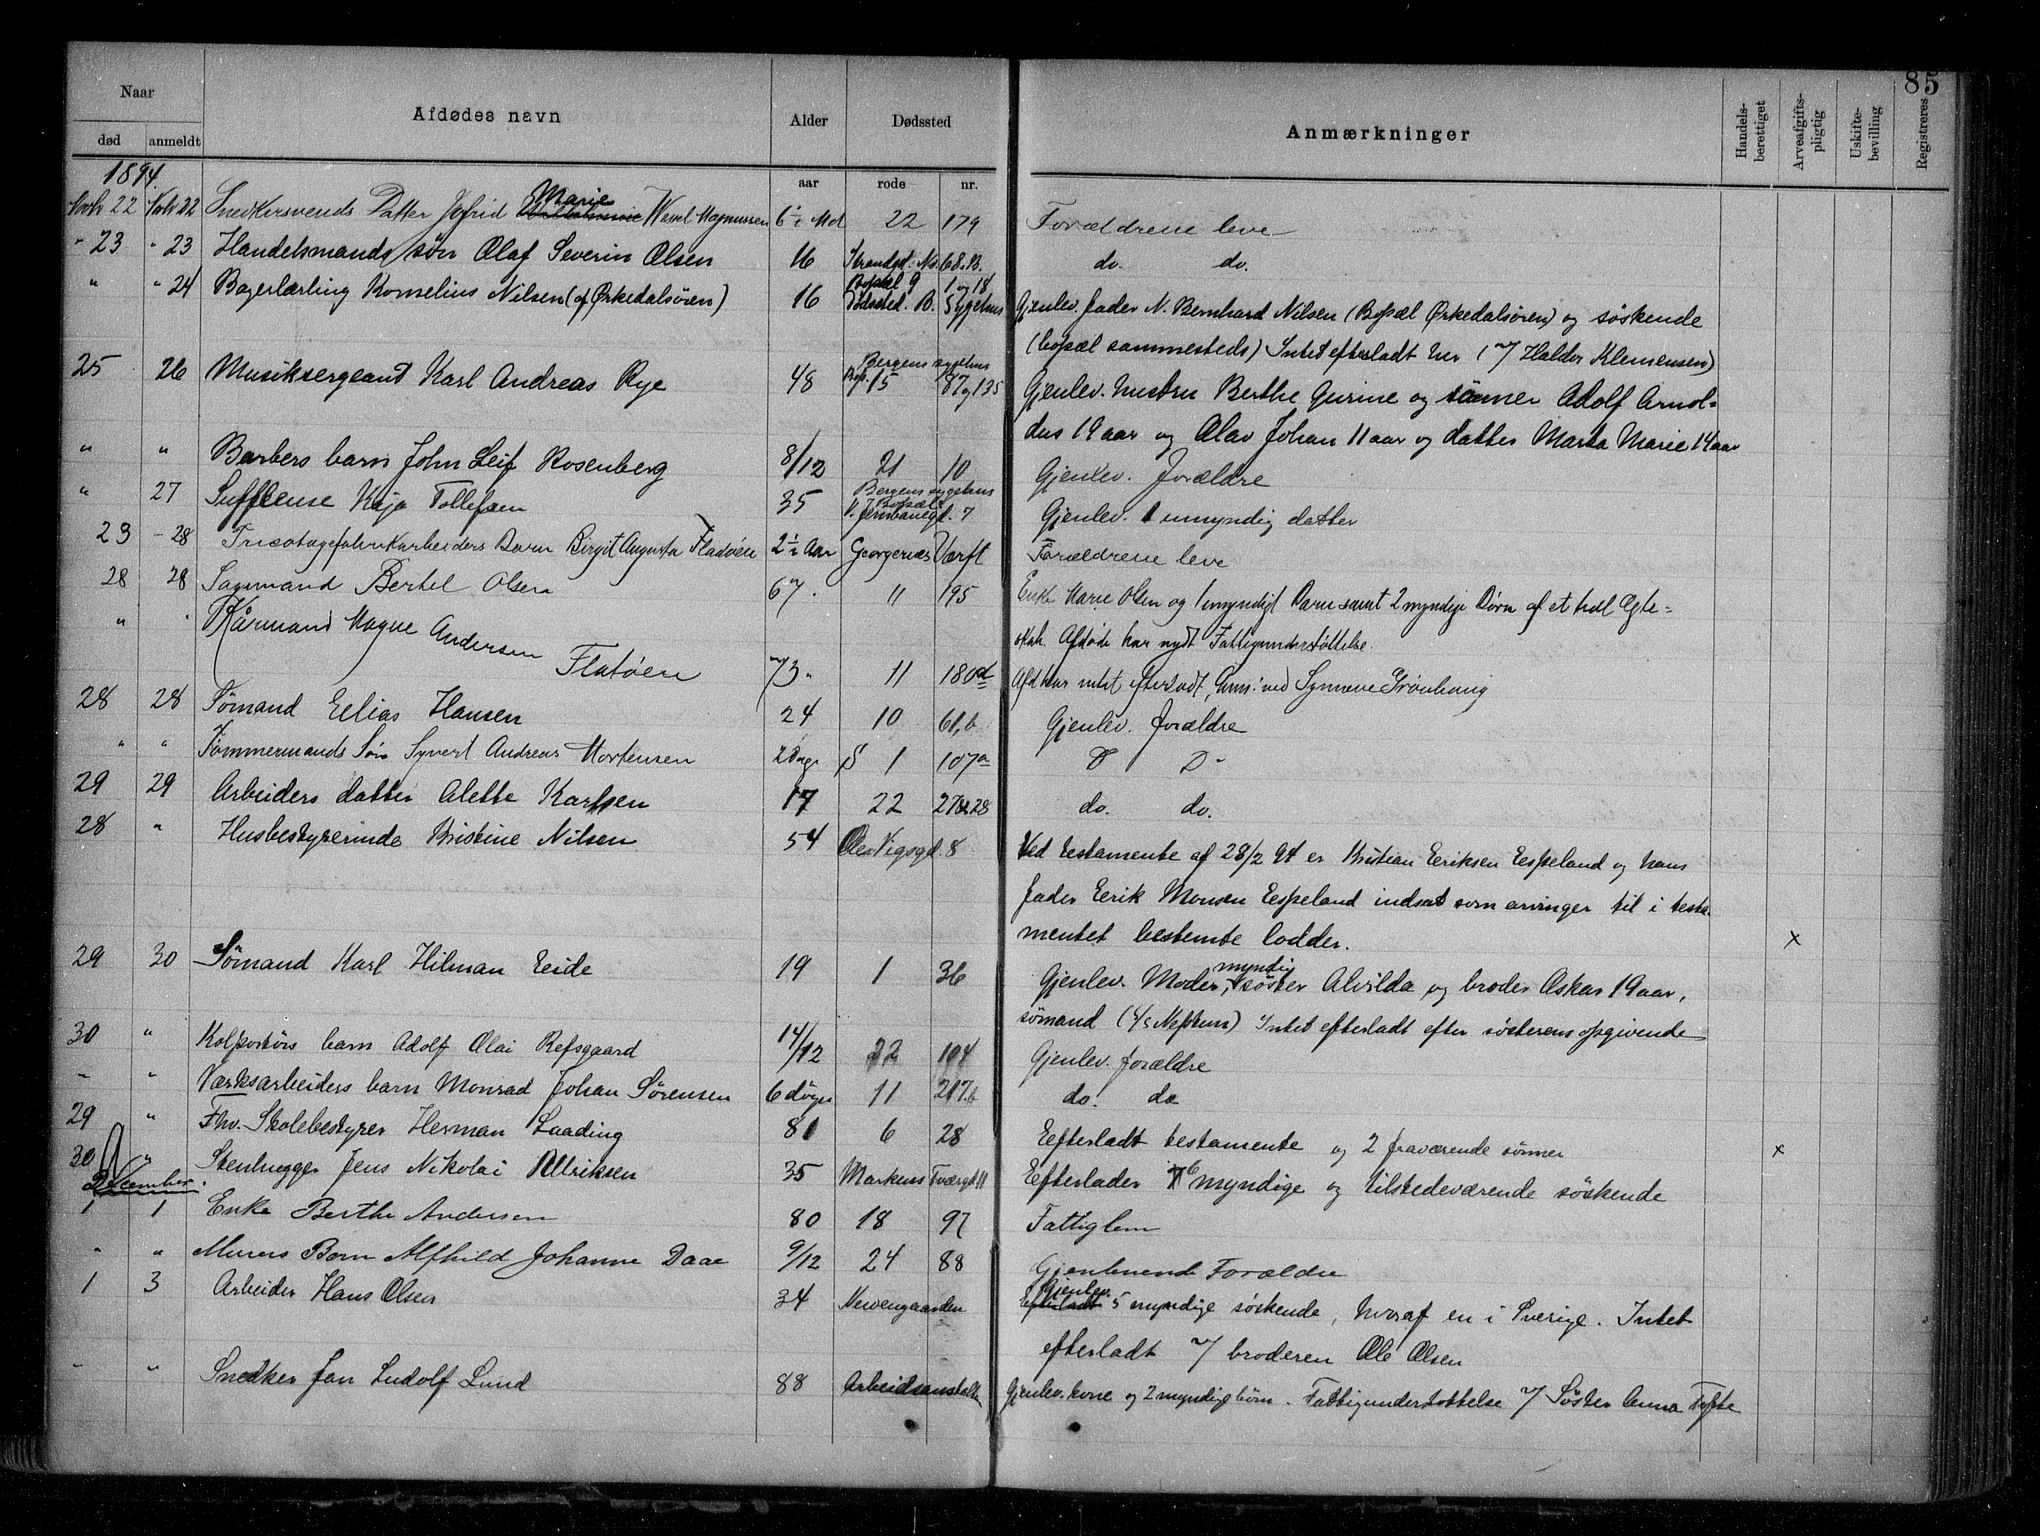 85
Naar
Afdødes navn
Alder
Dødssted
Anmærkninger
Handels-berettiget
Arveafgifts-pligtig
Uskifte-bevilling
Registreres
død anmeldt
aar rode nr.
1894.
Novb 22 Novb 22 Snedkersvends Datter Jofrid Marie Wessel Magnussen 6½ Md 22 179 Forældrene leve
" 23 " 23 Handelsmands søn Olaf Severin Olsen 16 Strandgd. No. 68.B. do. do.
" " 24 Bagerlærling Kornelius Nilsen (af Ørkedalsøren) 16 Bopæl 9 1 og 18
Dødssted. B. Sygehus Gjenlev. fader N. Bernhard Nilsen (Bopæl Ørkedalsøren) og søskende
(bopæl sammesteds) Intet efterladt her (v/ Haldor Klemensen)
25 26 Musiksergeant Karl Andreas Rye 48 Bergens sygehus
Bop. 15 87 og 135 Gjenlev. hustru Berthe Gurine og sønner Adolf Arnol-
dus 19 aar og Olav Johan 11 aar og datter Marta Marie 14 aar
" " Barbers barn John Leif Rosenberg 8/12 21 10 Gjenlev. forældre
" 27 Suffleuse Kaja Tollefsen 35 Bergens sygehus
Bopæl
V. Jernbanegd. 7 Gjenlev. 1 umyndig datter
23 - 28 Tricotagefabrikarbeiders Barn Birgit Augusta Fladøen 2½ Aar Georgernes Værft Forældrene leve
28 28 Sagmand Bertel Olsen 67. 11 195 Enke Marie Olsen og 1 umyndigt Barn samt 2 myndige Børn af et tidl Ægte-
skab. Afdøde har nydt Fattigunderstøttelse.
" " Kårmand Magne Andersen
Flatøen 73. 11 180d Afd har intet efterladt, Anm: ved Synneve Grønhaug
28 28 Sømand Elias Hansen 24 10 61,b Gjenlev. forældre
" " Tømmermands Søn Syvert Andreas Mortensen 2 Dage S 1 107a D D
29 29 Arbeiders datter Alette Karlsen 17 22 27 & 28 do. do.
28 " Husbestyrerinde Kristine Nilsen 54 Ole Vigsgd. 8 Ved testamente af 28/2 94 er Kristian Eriksen Espeland og hans
fader Erik Monsen Espeland indsat som arvinger til i testa-
mentet bestemte lodder. x
29 30 Sømand Karl Hilman Eide 19 1 36 Gjenlev. Moder, myndig søster Alvilda og broder Oskar 19 aar,
sømand (D/S Neptun) Intet efterladt efter søsterens opgivende
30 " Kolportørs barn Adolf Olai Refsgaard 14/12 22 104 Gjenlev. forældre
- " Værksarbeiders barn Monrad Johan Sørensen 6 døgn 11 217.b do. do
29 " Fhv. Skolebestyrer Herman Laading 81 6 28 Efterladt testamente og 2 fraværende sønner x
30 " Stenhugger Jens Nikolai Ulriksen 35 Markens Tværgd 11 Efterlader 6 myndige og tilstedeværende søskende
December.
1 1 Enke Berthe Andersen 80 18 97 Fattiglem
" " Murers Barn Alfhild Johanne Daae 9/12 24 88 Gjenlevende Forældre
1 3 Arbeider Hans Olsen 34 Nevengaarden Gjenlev. Efterladt 5 myndige søskende, hvoraf en i Sverige. Intet
efterladt v/ broderen Ole Olsen
" " Snedker Jan Ludolf Lund 88 Arbeidsanstalten Gjenlev. kone og 2 myndige børn. Fattigunderstøttelse v/ Søster Anna Tyfte